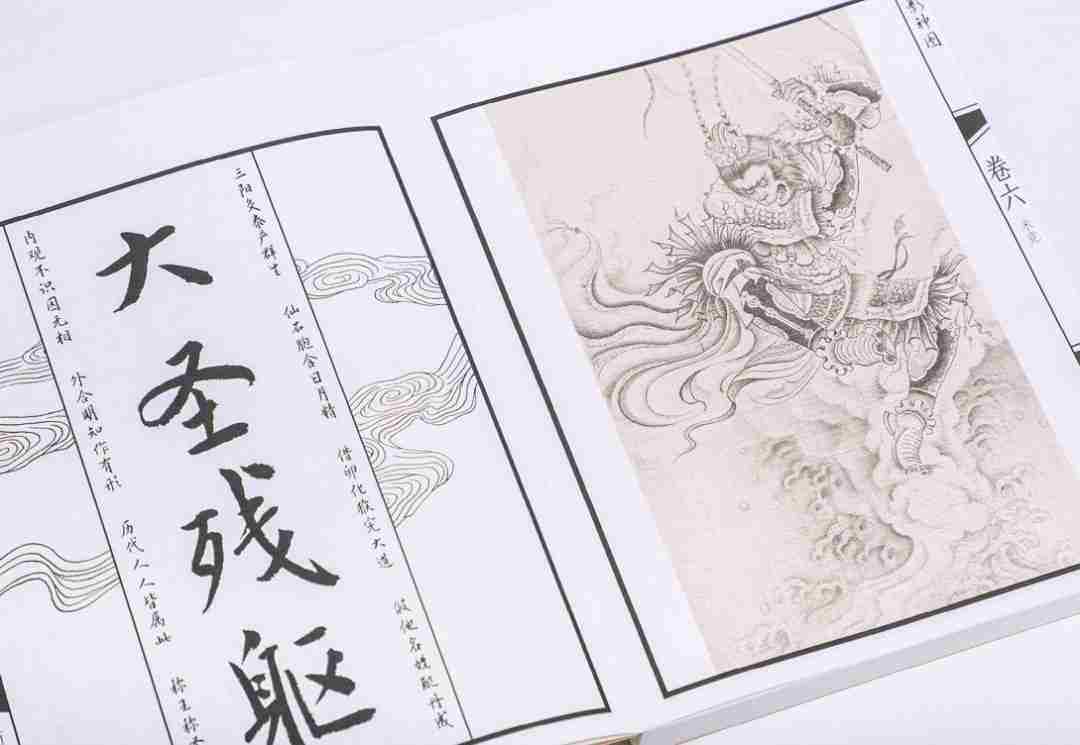 影神图
卷六
未竟
三阳交泰产群生
仙石胞含日月精
借卵化猴完大道
假他名姓配丹成
大圣残躯
内观不识因无相
外合明知作有形
历代人人皆属此
称王称